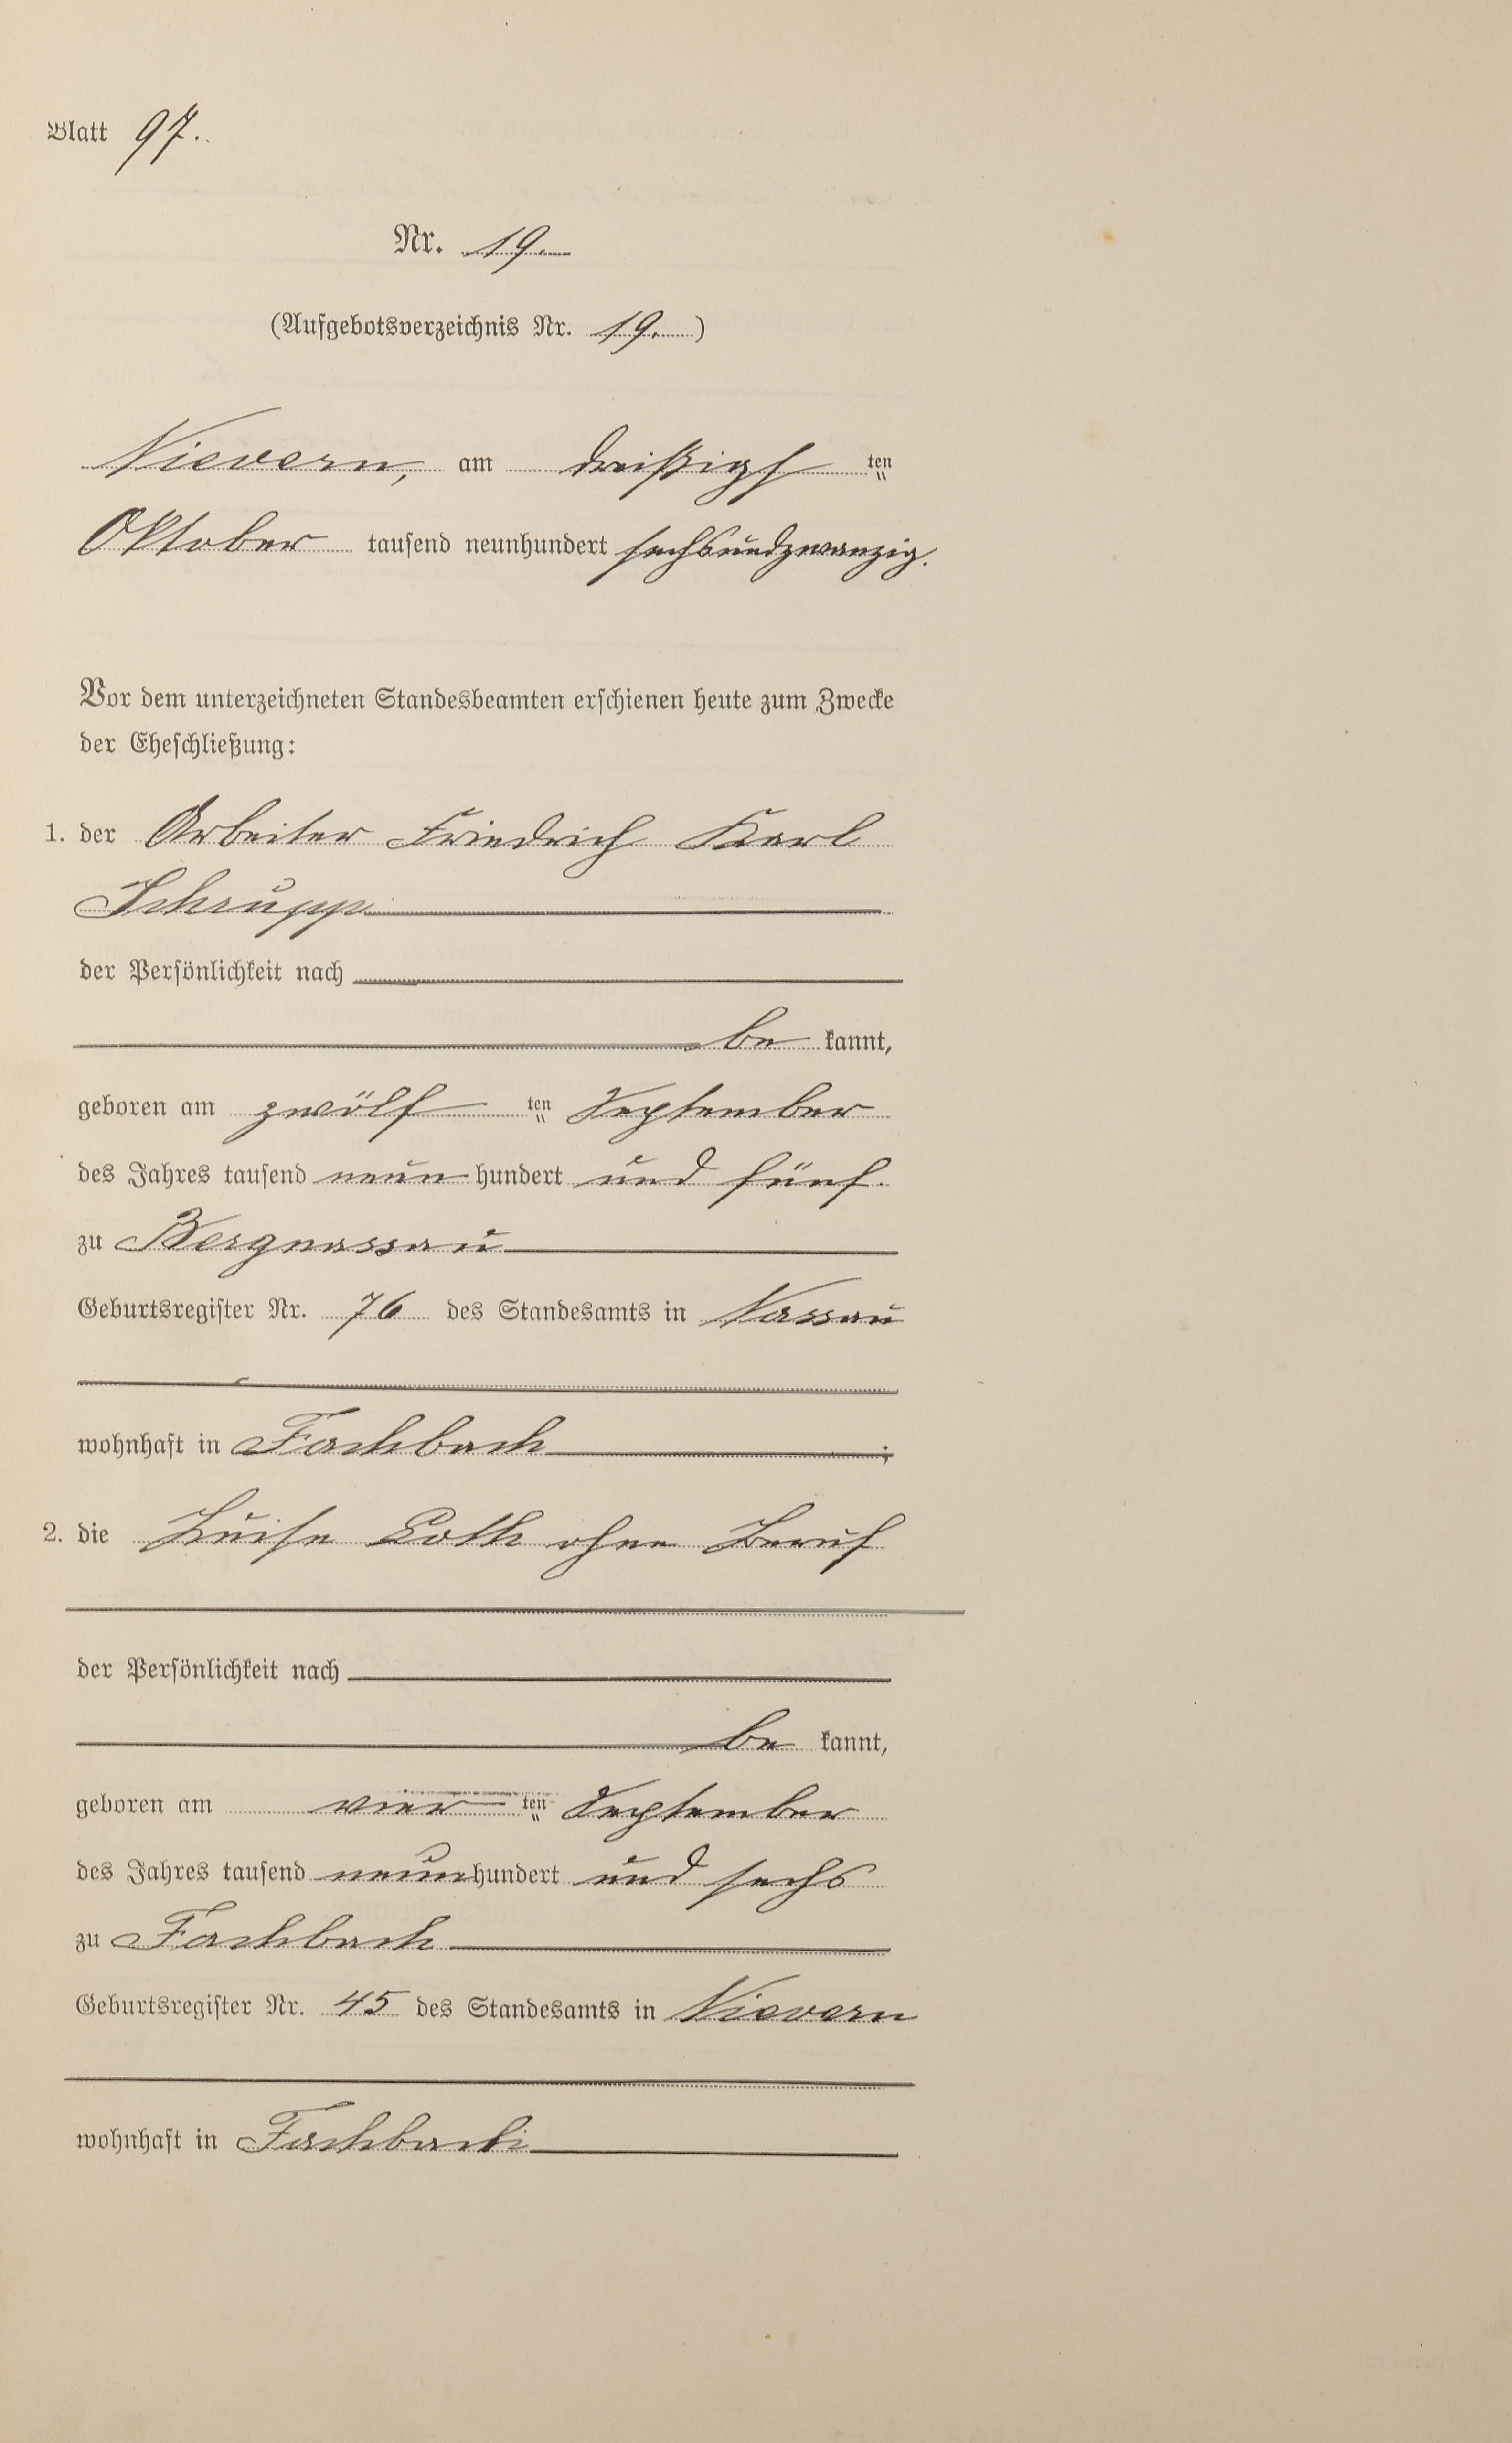 Blatt 97.
Nr. 19.
(Aufgebotsverzeichnis Nr. 19.)
Nievern, am dreißigsten
Oktober tausend neunhundert sechsundzwanzig.
Vor dem unterzeichneten Standesbeamten erschienen heute zum Zwecke
der Eheschließung:
1. der Arbeiter Friedrich Karl
Schrupp
der Persönlichkeit nach
be kannt,
geboren am zwölf ten September
des Jahres tausend neun hundert und fünf.
zu Bergnassau
Geburtsregister Nr. 76 des Standesamts in Nassau
wohnhaft in Fachbach ;
2. die Luise Loth ohne Beruf
der Persönlichkeit nach
be kannt,
geboren am vier ten September
des Jahres tausend neunhundert und sechs
zu Fachbach
Geburtsregister Nr. 45 des Standesamts in Nievern
wohnhaft in Fachbach